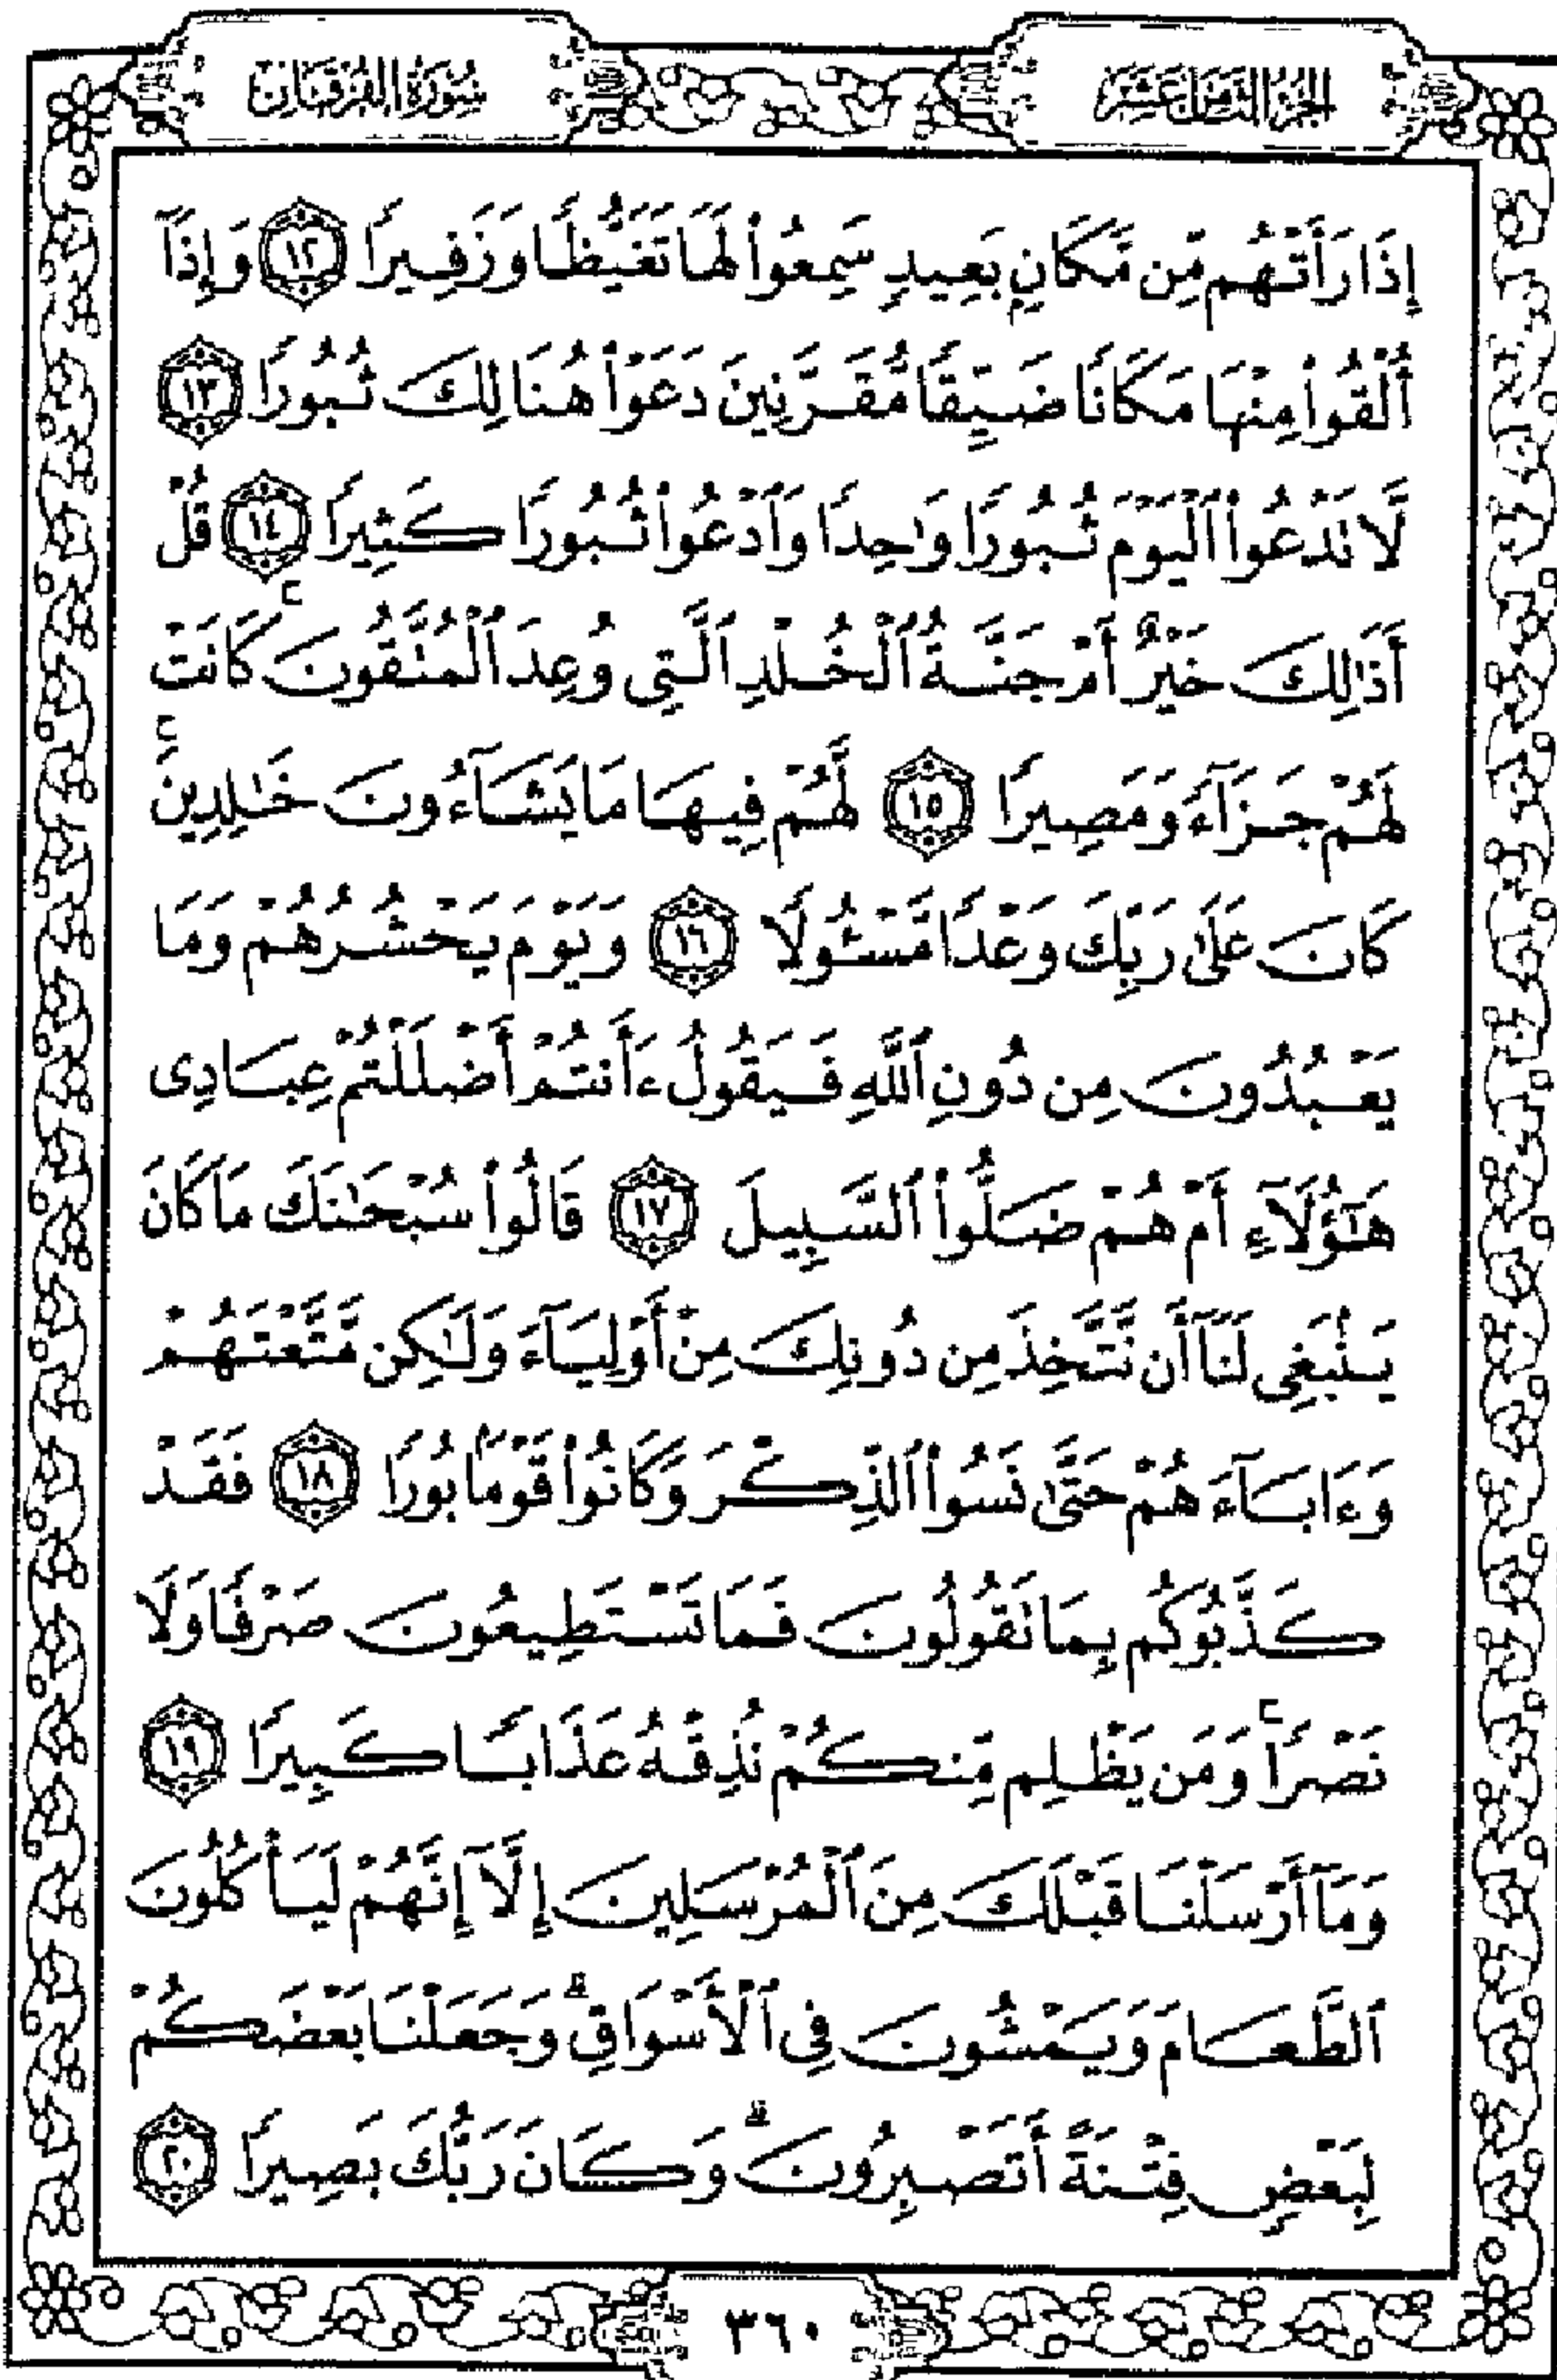 الجزء الثامن عشر
سورة الفرقان
إِذَا رَأَتْهُم مِّن مَّكَانٍ بَعِيدٍ سَمِعُوا۟ لَهَا تَغَيُّظًا وَزَفِيرًا ١٢ وَإِذَآ
أُلْقُوا۟ مِنْهَا مَكَانًا ضَيِّقًا مُّقَرَّنِينَ دَعَوْا۟ هُنَالِكَ ثُبُورًا ١٣
لَّا تَدْعُوا۟ ٱلْيَوْمَ ثُبُورًا وَٰحِدًا وَٱدْعُوا۟ ثُبُورًا كَثِيرًا ١٤ قُلْ
أَذَٰلِكَ خَيْرٌ أَمْ جَنَّةُ ٱلْخُلْدِ ٱلَّتِى وُعِدَ ٱلْمُتَّقُونَ ۚ كَانَتْ
لَهُمْ جَزَآءً وَمَصِيرًا ١٥ لَّهُمْ فِيهَا مَا يَشَآءُونَ خَٰلِدِينَ ۚ
كَانَ عَلَىٰ رَبِّكَ وَعْدًا مَّسْـُٔولًا ١٦ وَيَوْمَ يَحْشُرُهُمْ وَمَا
يَعْبُدُونَ مِن دُونِ ٱللَّهِ فَيَقُولُ ءَأَنتُمْ أَضْلَلْتُمْ عِبَادِى
هَٰٓؤُلَآءِ أَمْ هُمْ ضَلُّوا۟ ٱلسَّبِيلَ ١٧ قَالُوا۟ سُبْحَٰنَكَ مَا كَانَ
يَنۢبَغِى لَنَآ أَن نَّتَّخِذَ مِن دُونِكَ مِنْ أَوْلِيَآءَ وَلَٰكِن مَّتَّعْتَهُمْ
وَءَابَآءَهُمْ حَتَّىٰ نَسُوا۟ ٱلذِّكْرَ وَكَانُوا۟ قَوْمًۢا بُورًا ١٨ فَقَدْ
كَذَّبُوكُم بِمَا تَقُولُونَ فَمَا تَسْتَطِيعُونَ صَرْفًا وَلَا
نَصْرًا ۚ وَمَن يَظْلِم مِّنكُمْ نُذِقْهُ عَذَابًا كَبِيرًا ١٩
وَمَآ أَرْسَلْنَا قَبْلَكَ مِنَ ٱلْمُرْسَلِينَ إِلَّآ إِنَّهُمْ لَيَأْكُلُونَ
ٱلطَّعَامَ وَيَمْشُونَ فِى ٱلْأَسْوَاقِ ۗ وَجَعَلْنَا بَعْضَكُمْ
لِبَعْضٍ فِتْنَةً أَتَصْبِرُونَ ۗ وَكَانَ رَبُّكَ بَصِيرًا ٢٠
٣٦٠